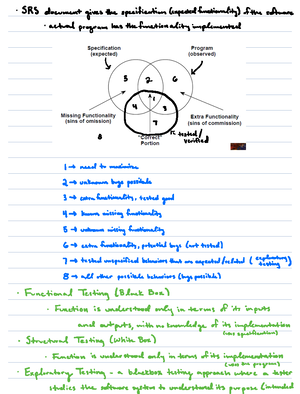 · SRS document gives the specification (expected functionality) of the software
· actual program has the functionality implemented
Specification
(expected)
Program
(observed)
5
2
6
1
4
3
7
8
Missing Functionality
(sins of omission)
Extra Functionality
(sins of commission)
"Correct"
Portion
tested/
verified
1 → need to maximize
2 → unknown bugs possible
3 → extra functionality, tested good
4 → known missing functionality
5 → unknown missing functionality
6 → extra functionality, potential bugs (not tested)
7 → tested unspecified behaviors that are expected/related (exploratory
testing)
8 → all other possible behaviors (bugs possible)
· Functional Testing (Black Box)
· Function is understood only in terms of its inputs
and outputs, with no knowledge of its implementation
(uses specification)
· Structural Testing (White Box)
· Function is understood only in terms of its implementation
(uses the program)
· Exploratory Testing - a blackbox testing approach where a tester
studies the software system to understand its purpose (intended